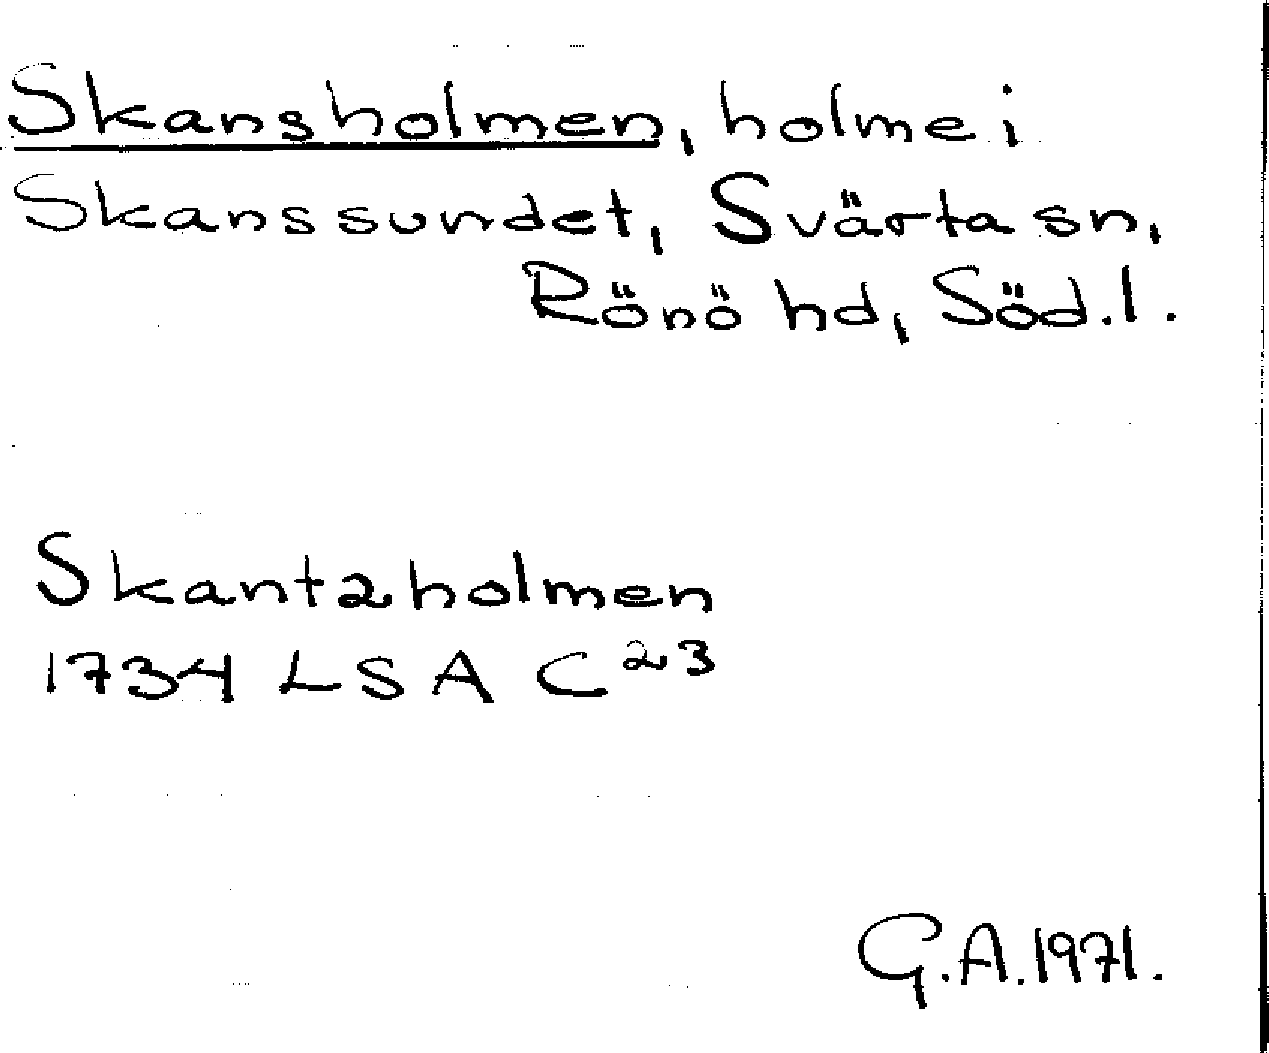 Skansholmen, holme i
Skanssundet, Svärta sn,
Rönö hd, Söd.l.
Skantzholmen
1734 LSA C 23
G.A. 1971.